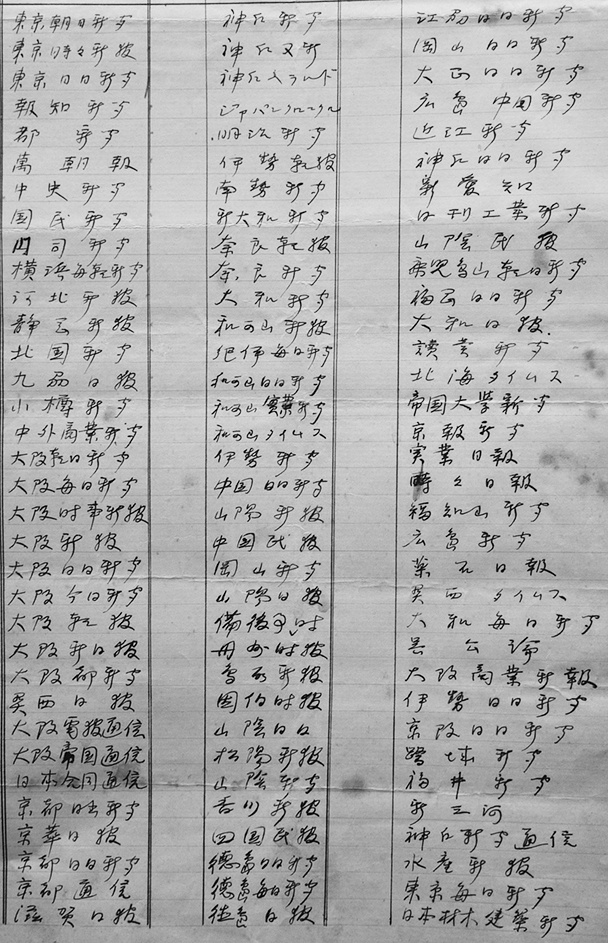 東京朝日新聞
東京時々新報
東京日日新聞
報知新聞
都新聞
萬朝報
中央新聞
国民新聞
門司新聞
横浜毎朝新聞
河北新報
静岡新報
北国新聞
九州日報
小樽新聞
中外商業新聞
大阪朝日新聞
大阪毎日新聞
大阪時事新報
大阪新報
大阪日日新聞
大阪今日新聞
大阪朝報
大阪新日報
大阪都新聞
関西日報
大阪電報通信
大阪帝国通信
日本合同通信
京都日出新聞
京華日報
京都日日新聞
京都通信
滋賀日報
神戸新聞
神戸又新
神戸ヘラルド
ジャパンクロニクル
明治新聞
伊勢朝報
南勢新聞
新大和新聞
奈良朝報
奈良新聞
大和新聞
和可山新報
紀伊毎日新聞
和可山日日新聞
和可山実業新聞
和可山タイムス
伊勢新聞
中国日日新聞
山陽新報
中国民報
岡山新聞
山陽日報
備後日日
丹州時報
鳥取新報
因伯時報
山陰日日
松陽新報
山陰新聞
香川新報
四国民報
徳島日日新聞
徳島毎日新聞
徳島日報
江州日日新聞
岡山日日新聞
大正日日新聞
広島中国新聞
近江新聞
神戸日日新聞
新愛知
日刊工業新聞
山陰民報
鹿児島山朝日新聞
福岡日日新聞
大和日報
読売新聞
北海タイムス
帝国大学新聞
京報新聞
実業日報
時々日報
福知山新聞
広島新聞
薬石日報
関西タイムス
大和毎日新聞
呉公論
大阪商業新報
伊勢日日新聞
京阪日日新聞
新聞
福井新聞
新三河
神戸新聞通信
水産新報
東京毎日新聞
日本材木建築新聞